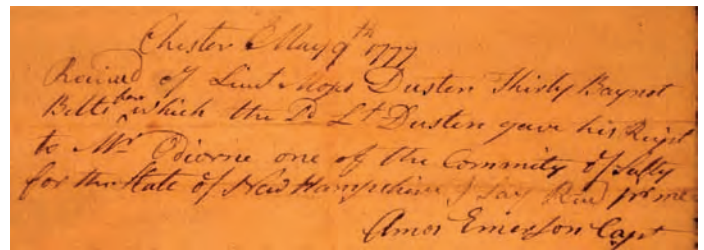 Chester May 9th 1777
Reciued of Liut Moses Dusten Thirty Baynot
Belts which the sd Lt Dusten gave his Recpt
to Mr Odiorne one of the Commity of Safty
for the State of New Hampshire I say Recd pr me
Amos Emerson Capt